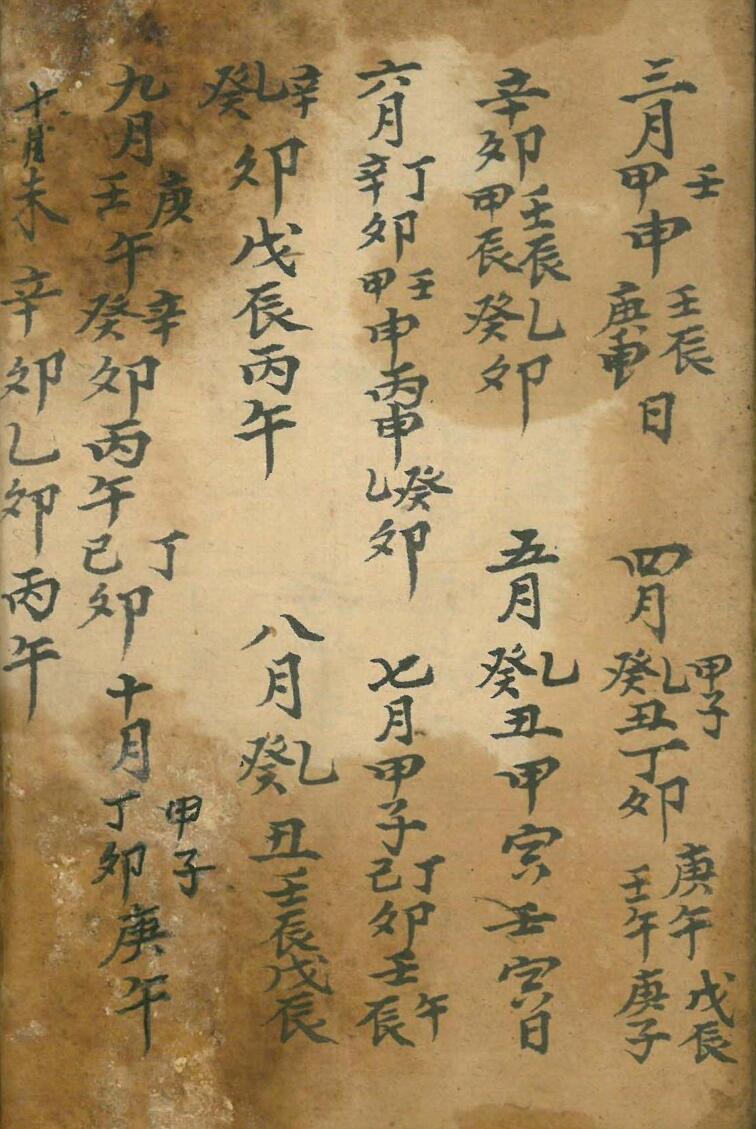 三月甲壬申庚申壬辰日四月癸乙丑甲子丁卯壬午庚午庚子戊辰
辛卯甲辰壬辰癸乙卯五月癸乙丑甲寅壬寅日
六月辛丁卯甲壬申丙申乙癸卯七月甲子己丁卯壬辰午
癸乙辛卯戊辰丙午八月癸乙丑壬辰戊辰
九月壬庚午癸辛卯丙午己丁卯十月丁卯甲子庚午
未辛卯乙卯丙午